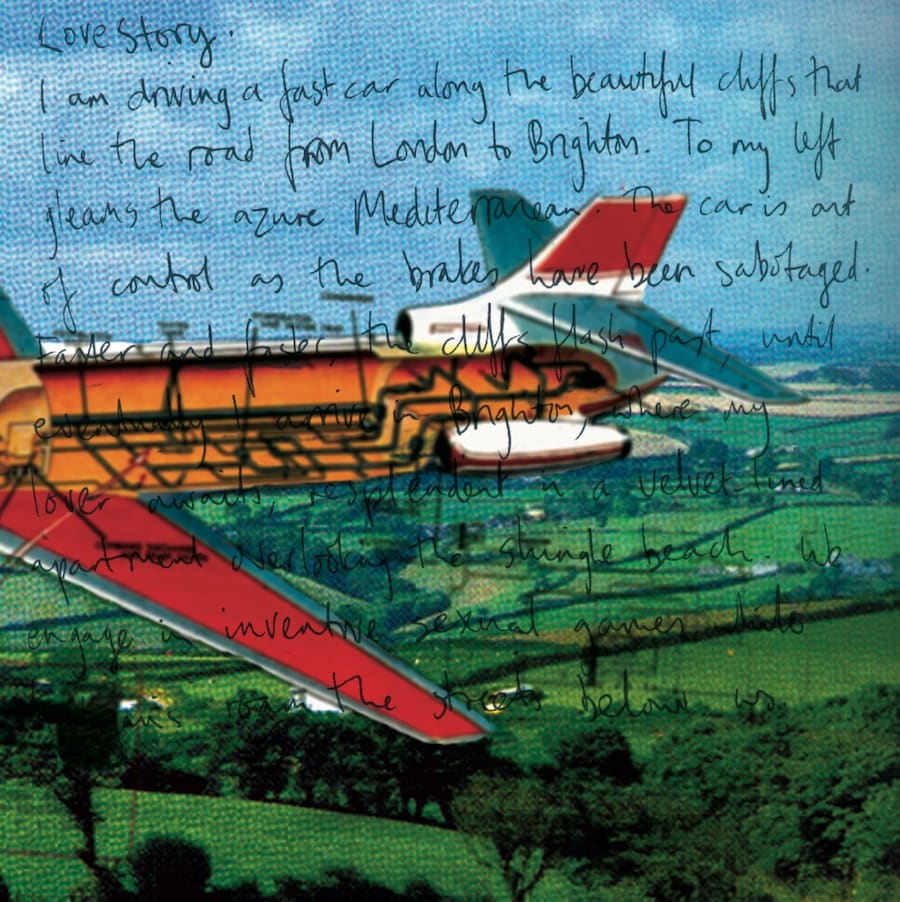 Love Story.
I am driving a fast car along the beautiful cliffs that
line the road from London to Brighton. To my left
gleams the azure Mediterranean. The car is out
of control as the brakes have been sabotaged.
Faster and faster, the cliffs flash past, until
eventually I arrive in Brighton, where my
lover awaits, resplendent in a velvet-lined
apartment overlooking the shingle beach. We
engage in inventive sexual games while
roam the streets below us